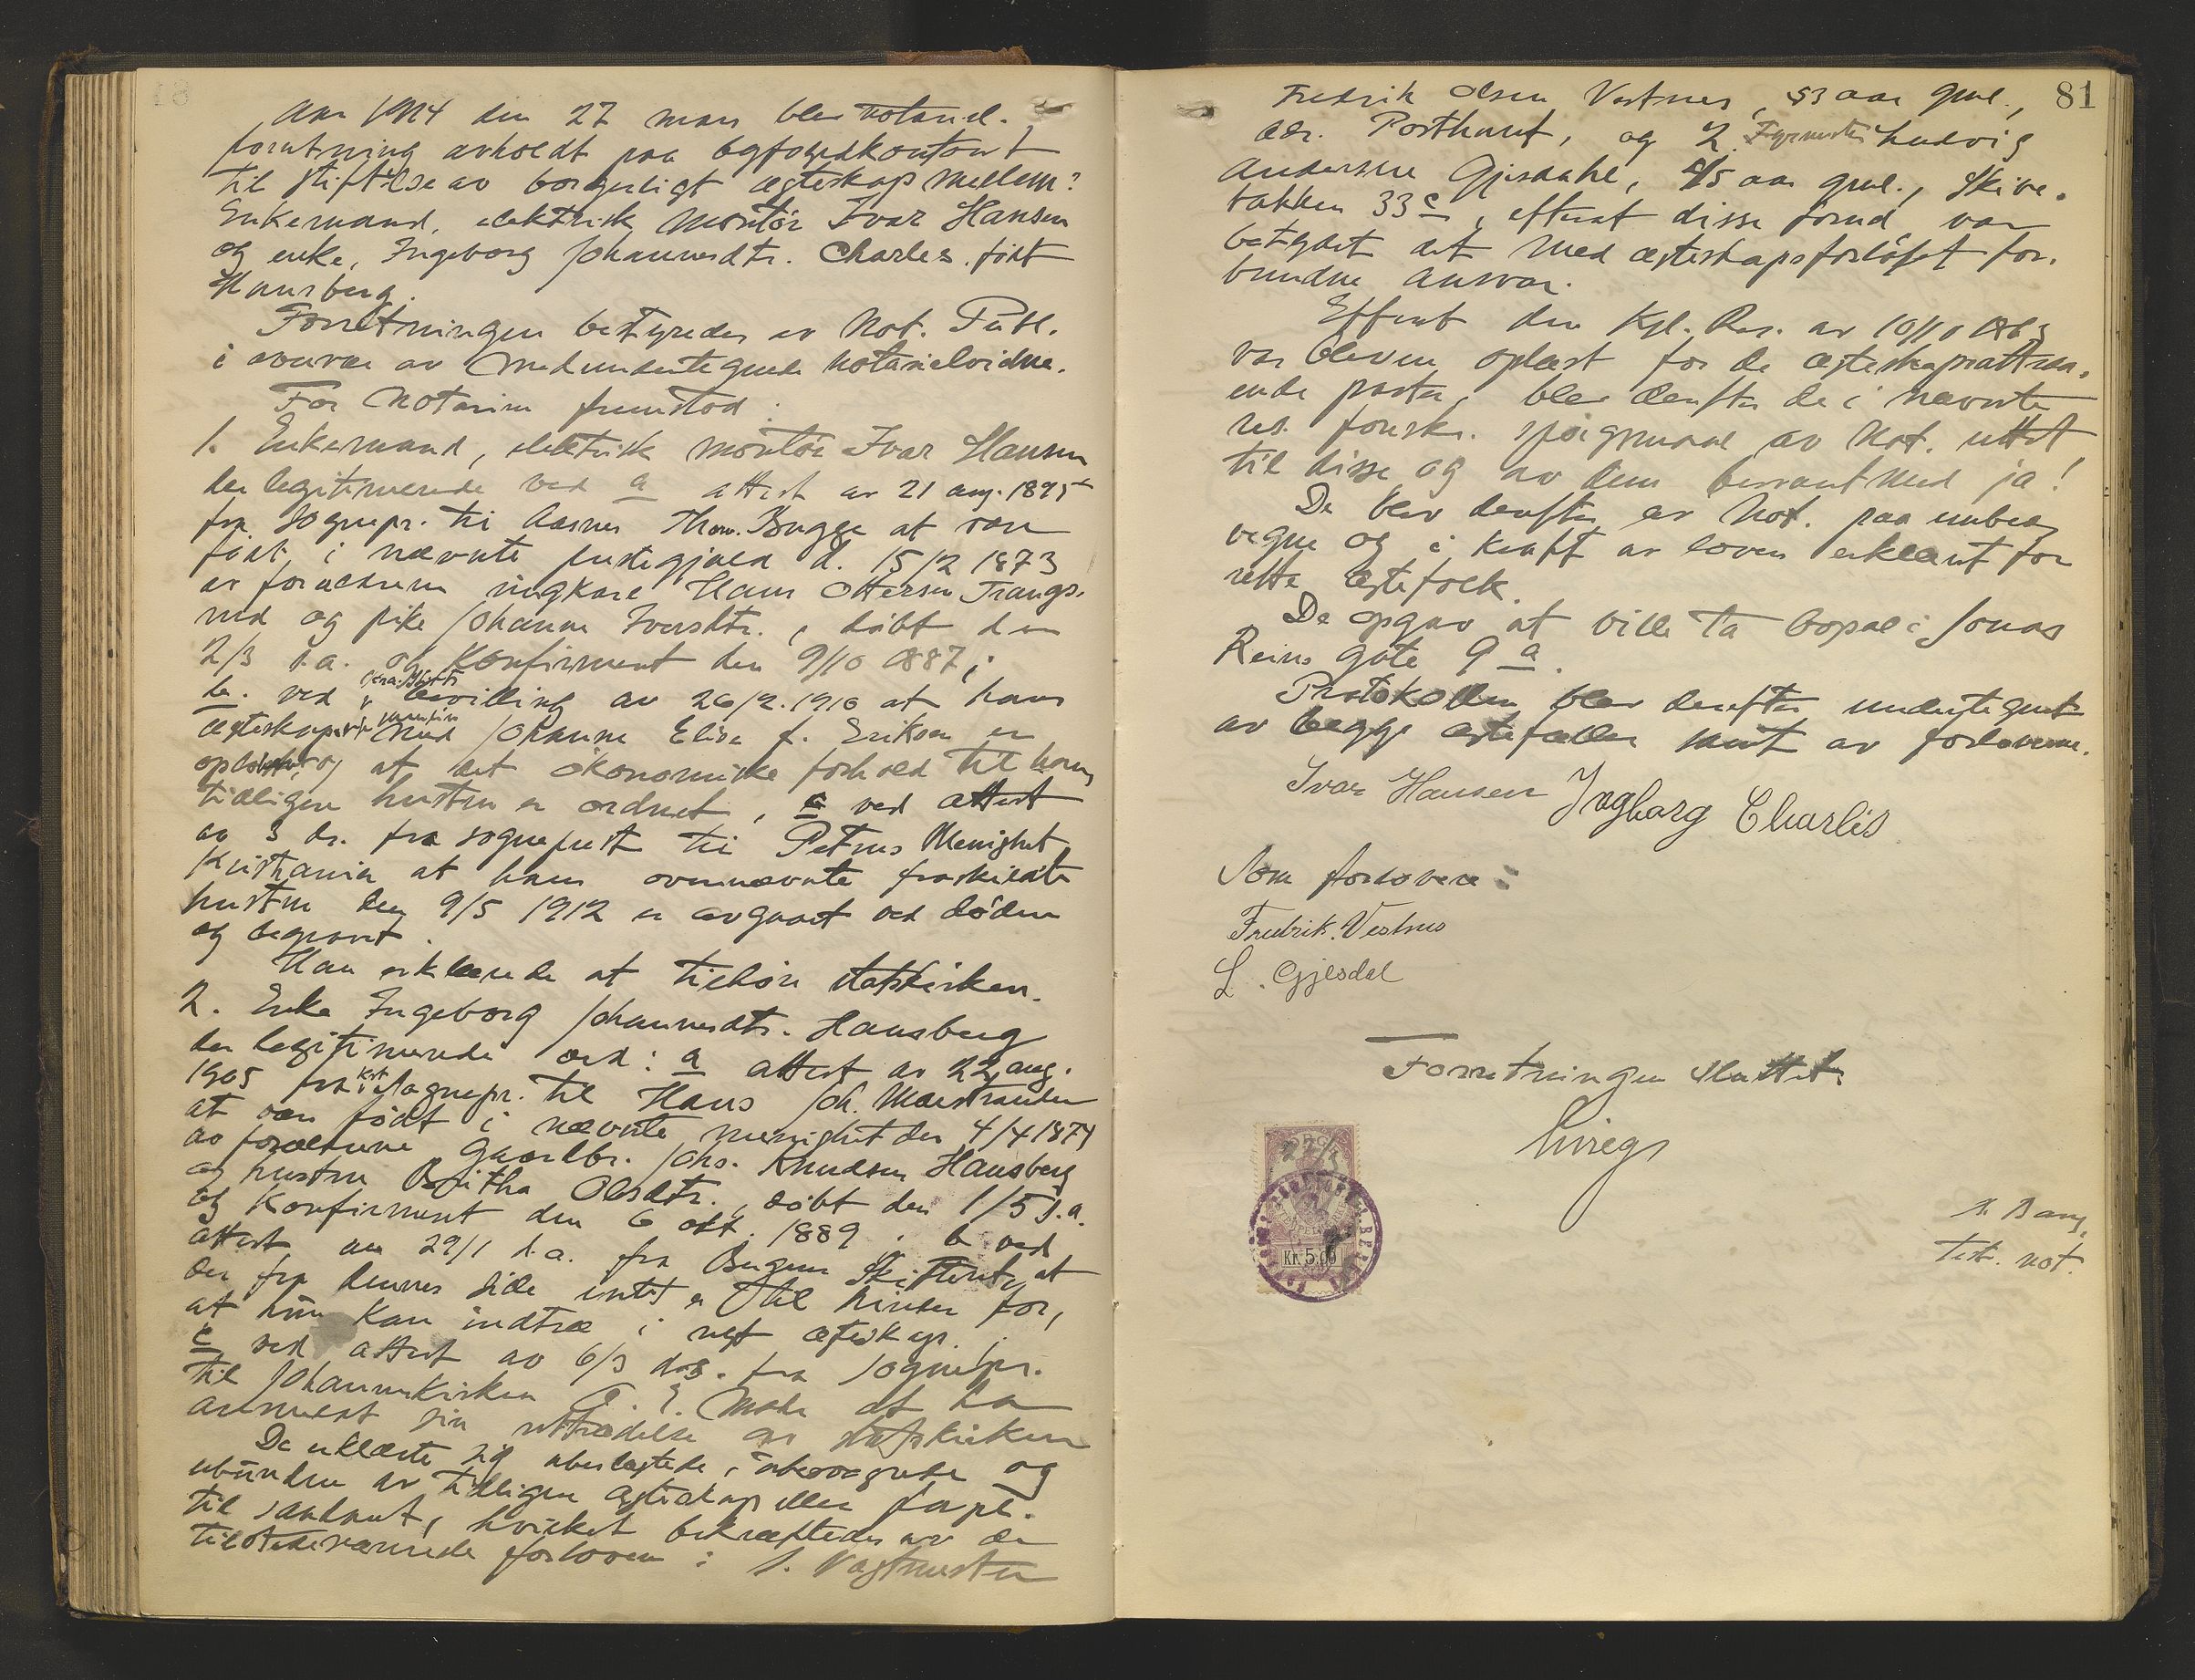 Aar 1914 den 27 mars blev notariel-
forretning avholdt paa byfogedkontoret
til stiftelse av borgerligt egteskap mellem:
Enkemand, elektrisk montör Ivar Hansen
og enke, Ingeborg Johannesdtr. Charles født
Hansberg.
Forretningen bestyredes av Not. Publ.
i overvær av medundertegnede notarialvidne.
For Notarius fremstod:
1. Enkemand, elektrisk montör Ivar Hansen
der legitimerede ved a attest av 21 aug. 1895
fra sognepr. til Aasnes Thorv. Bugge at være
født i nævnte prestegjeld d. 15/12 1873
av forældrene ungkarl Hans Ottersen Trangs-
rud og pike Johanne Iversdtr., döbt den
2/3 s.a. og konfirmert den 9/10 1887;
b. ved bevilling av 26/2.1910 at hans
egteskap med Johanne Elise f. Eriksen er
oplöst og at det ökonomiske forhold til hans
tidligere hustru er ordnet, c ved attest
av 3 ds. fra sogneprest til Petrus Menighet
Kristiania at hans ovennævnte fraskildte
hustru den 9/5 1912 er avgaaet ved döden
og begravet.
Han erklærede at tilhöre statskirken.
2. Enke Ingeborg Johannesdtr. Hansberg
der legitimerede ved: a attest av 22 aug.
1905 fra kst. Sognepr. til Haus Joh. Maistrander
at være født i nævnte menighet den 4/4 1874
av forældrene Gaardbr. Johs. Knudsen Hansberg
og hustru Britha Olsdtr., döbt den 1/5 s.a.
og konfirmert den 6 okt. 1889. b ved
attest av 29/1 d.a. fra Bergens Skifteret at
der fra dennes side intet er til hinder for,
at hun kan indtræ i nyt egteskap.;
c ved attest av 6/3 d.s. fra Sognepr.
til Johanneskirken at ha
anmeldt sin uttrædelse av statskirken
De erklærte sig ubeslegtede, ubesvogrede og
ubundne av tidligere egteskap eller forpl.
til saadant, hvilket bekræftedes av de
tilstedeværende forlovere: 1. Vagtmester
81
Fredrik Olsen Vestnes, 53 aar gml.,
adr. Posthuset, og 2. Fyrmester Ludvig
Andersen Gjesdahl, 45 aar gml., Skive-
bakken 33 c, efterat disse forud var
betydet det med egteskapsforløftet for-
bundne ansvar.
Efterat den Kgl. Res. av 10/10 1863
var bleven oplæst for de egteskapsattraa-
ende parter, blev derefter de i nævnte
res. foreskr. spörgsmaal av Not. rettet
til disse og av dem besvaret med ja!
De blev derefter av Not. paa embeds
vegne og i kraft av loven erklæret for
rette egtefolk.
De opgav at ville ta bopæl i Jonas
Reins gate 9 a.
Protokollen blev derefter undertegnet
av begge egtefæller samt av forloverne.
Ivar Hansen Ingborg Charlis
Som forlovere:
Fredrik. Vestnes
L. Gjesdal
Forretningen sluttet.
27/3
KR 5.00
S. Bang,
Test. not.